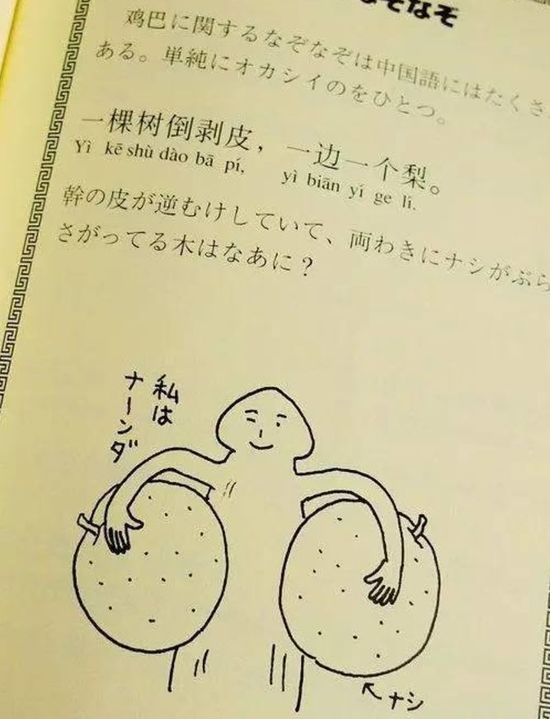 なぞなぞ
鸡巴に関するなぞなぞは中国語にはたくさ
ある。単純にオカシイのをひとつ。
一棵树倒剥皮，一边一个梨。
Yì kē shù dào bā pí, yì biān yí ge lí.
幹の皮が逆むけしていて、両わきにナシがぶら
さがってる木はなあに？
私は
ナーンダ
ナシ